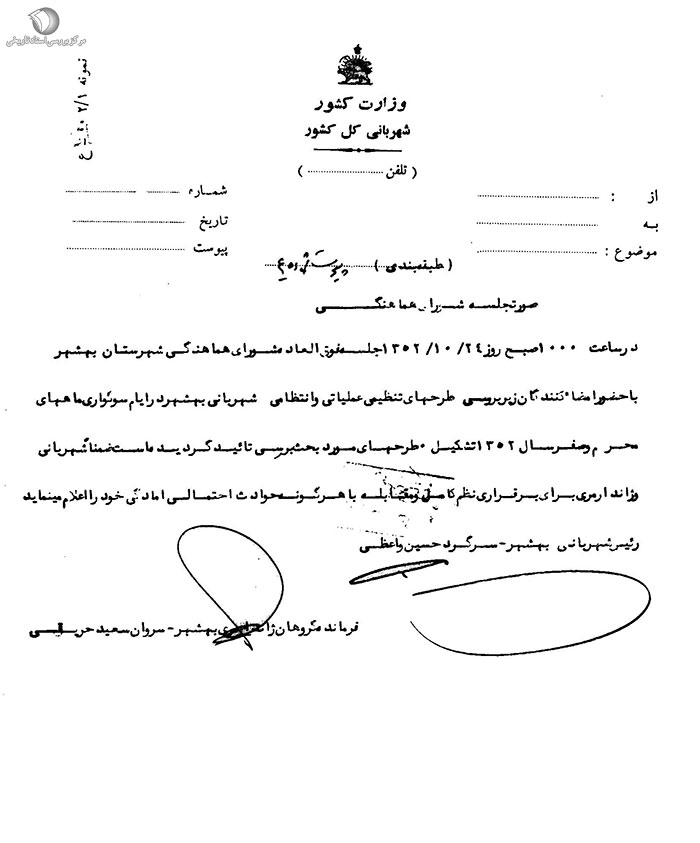 مرکز بررسی اسناد تاریخی
نمونه ۲/۱
وزارت کشور
شهربانی کل کشور
( تلفن .................... )
از :
به
موضوع :
شماره
تاریخ
پیوست
( طبقه‌بندی )
صورتجلسه شورای هماهنگی
درساعت ۱۰۰۰صبح روز ۲۴/ ۱۰/ ۱۳۵۲جلسه فوق العاده شورای هماهنگی شهرستان بهشهر
باحضورامضا ٔکنندگان زیربررسی طرحهای تنظیمی عملیاتی وانتظامی شهربانی بهشهردرایام سوگواری ماههای
محرم وصفرسال ۱۳۵۲تشکیل ۰طرحهای مورد بحث بررسی تائید گردیده است ضمنا شهربانی
وژاندارمری برای برقراری نظم کامل ومقابله باهرگونه حوادث احتمالی امادگی خود رااعلام مینماید
رئیس شهربانی بهشهر-سرگرد حسین واعظی
فرمانده گروهان ژاندارمری بهشهر-سروان سعید